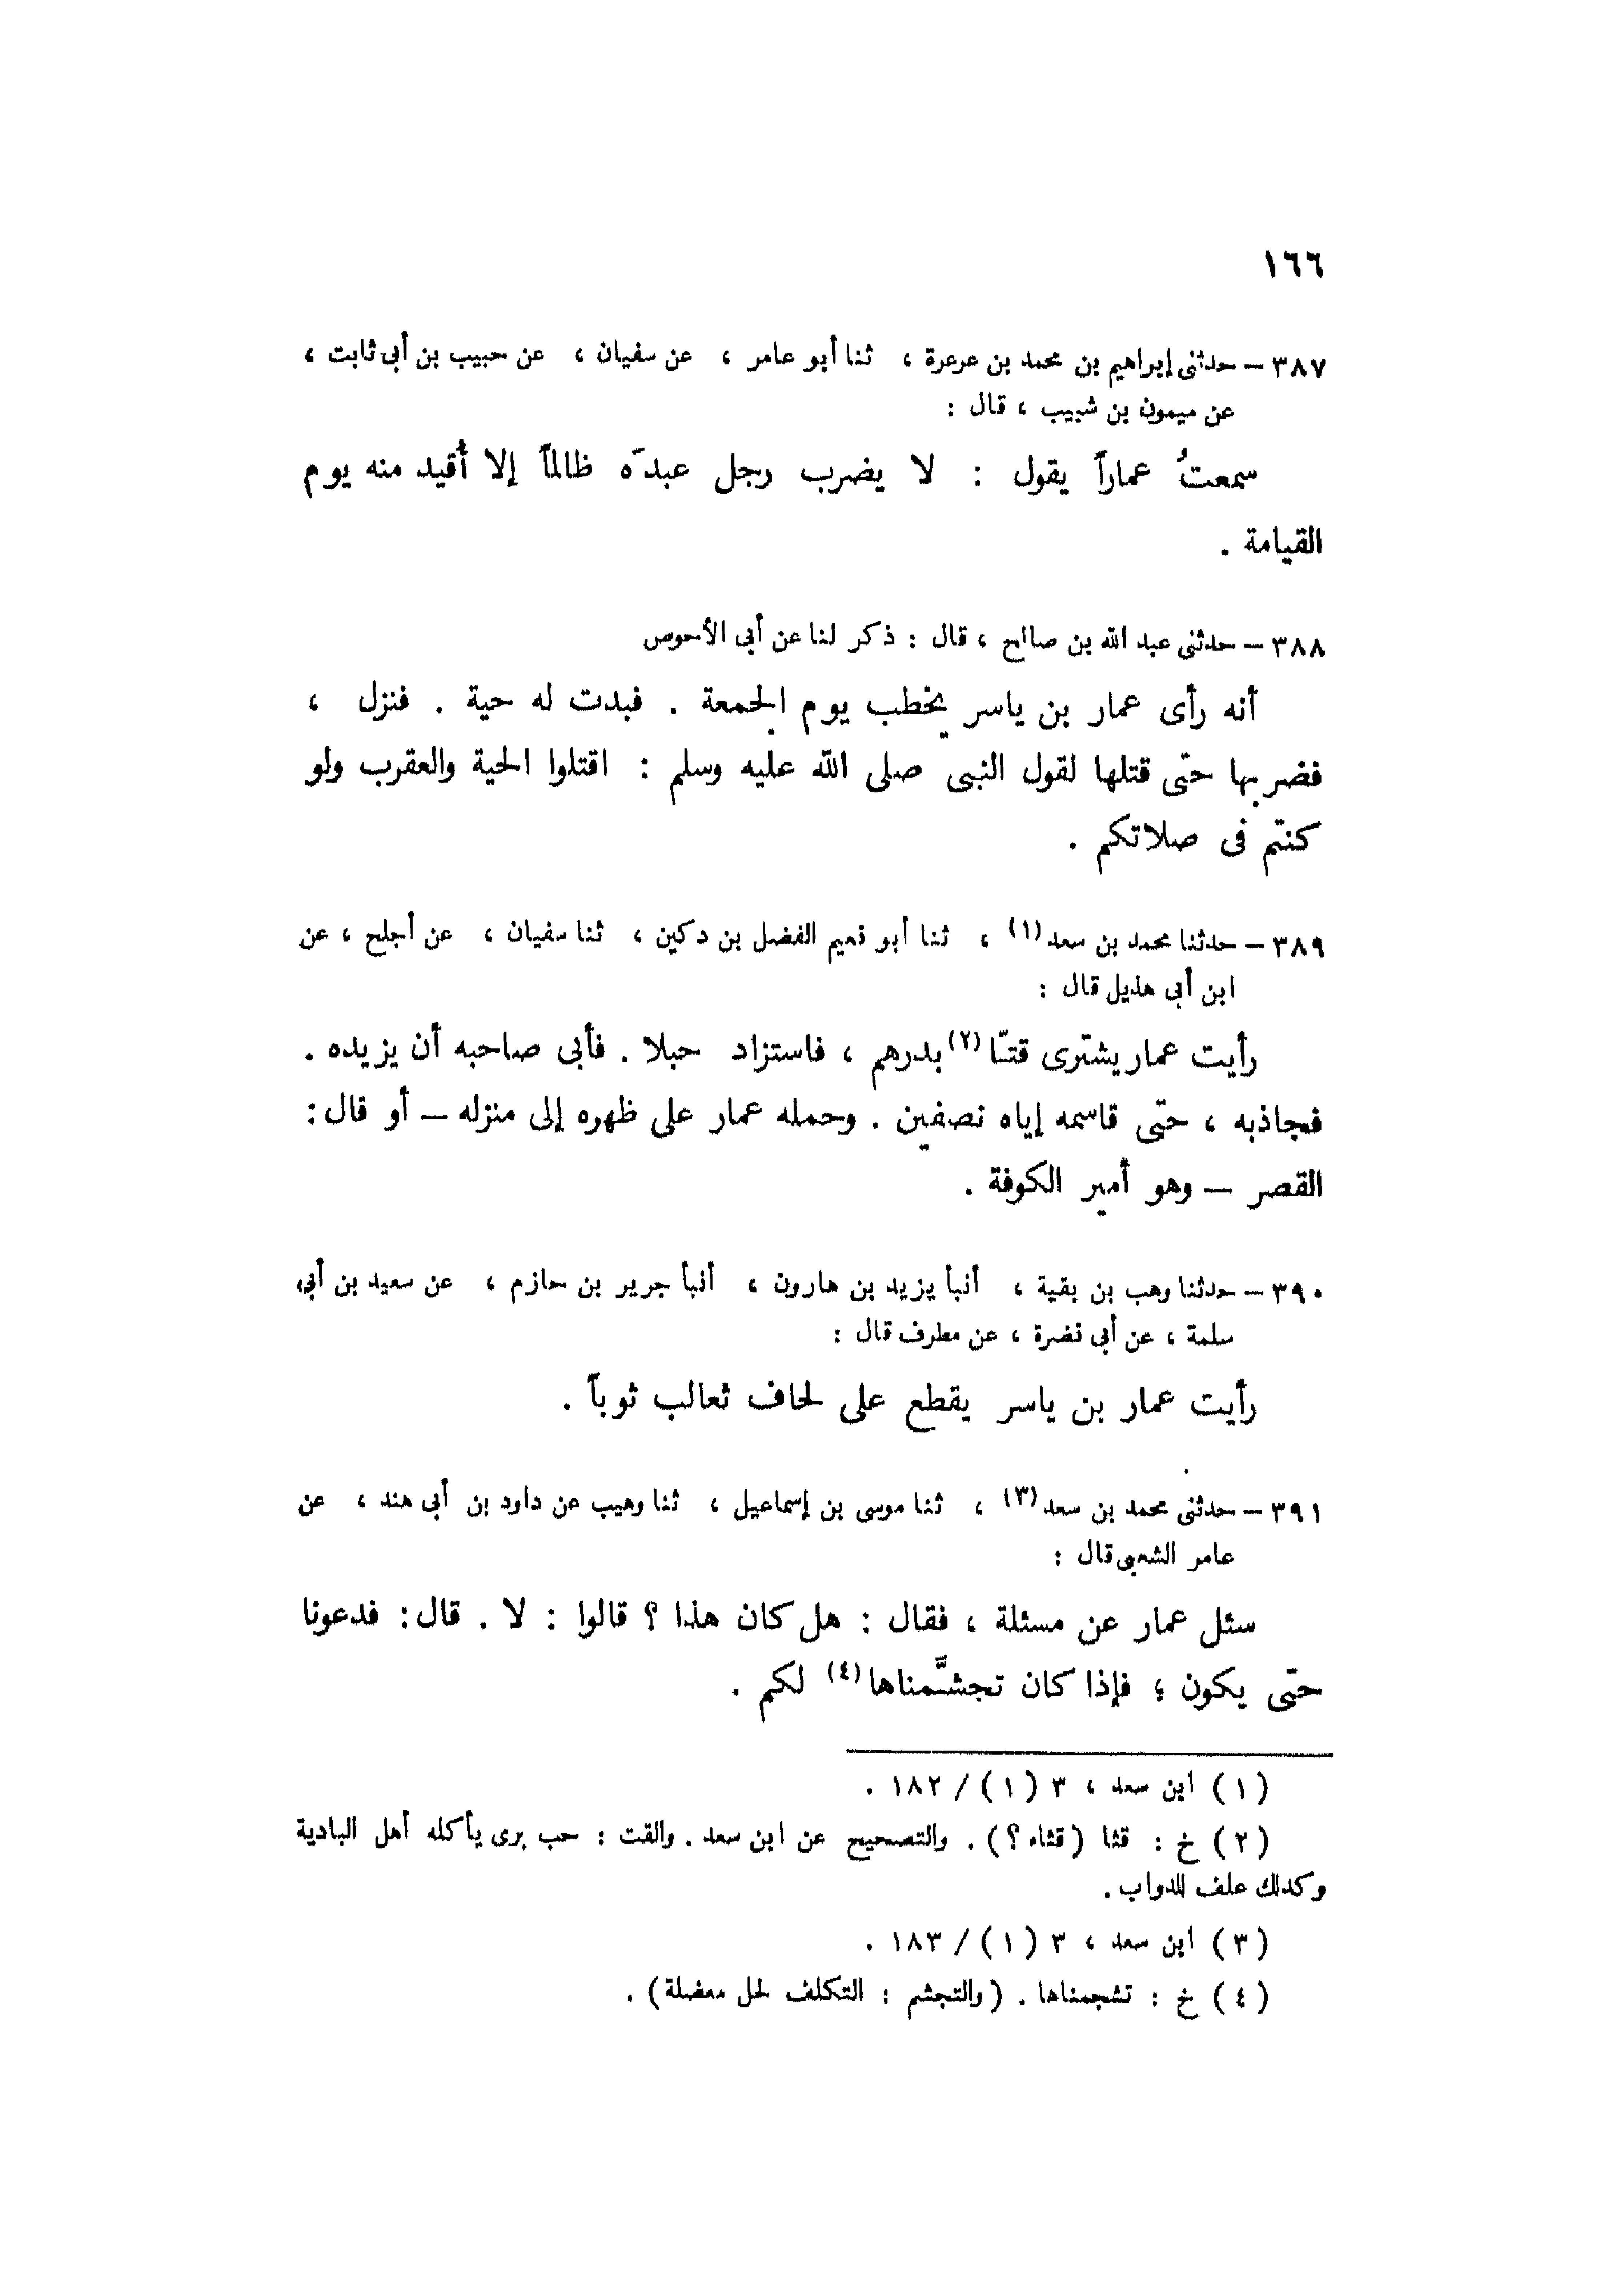 ١٦٦
٣٨٧ – حدثنى إبراهيم بن محمد بن عرعرة ، ثنا أبو عامر ، عن سفيان ، عن حبيب بن أبى ثابت ،
عن ميمون بن شبيب ، قال :
سمعتُ عماراً يقول : لا يضرب رجل عبدَه ظالماً إلا أُقيد منه يوم
القيامة .
٣٨٨ – حدثنى عبد الله بن صالح ، قال : ذكر لنا عن أبى الأحوص
أنه رأى عمار بن ياسر يخطب يوم الجمعة . فبدت له حية . فنزل ،
فضربها حتى قتلها لقول النبى صلى الله عليه وسلم : اقتلوا الحية والعقرب ولو
كنتم فى صلاتكم .
٣٨٩ – حدثنا محمد بن سعد (١) ، ثنا أبو نعيم الفضل بن دكين ، ثنا سفيان ، عن أجلح ، عن
ابن أبى هذيل قال :
رأيت عمار يشترى قتًّا (٢) بدرهم ، فاستزاد حبلا . فأبى صاحبه أن يزيده .
فجاذبه ، حتى قاسمه إياه نصفين . وحمله عمار على ظهره إلى منزله – أو قال :
القصر – وهو أمير الكوفة .
٣٩٠ – حدثنا وهب بن بقية ، أنبأ يزيد بن هارون ، أنبأ جرير بن حازم ، عن سعيد بن أبى
سلمة ، عن أبى نضرة ، عن مطرف قال :
رأيت عمار بن ياسر يقطع على لحاف ثعالب ثوباً .
٣٩١ – حدثنى محمد بن سعد (٣) ، ثنا موسى بن إسماعيل ، ثنا وهيب عن داود بن أبى هند ، عن
عامر الشعبى قال :
سئل عمار عن مسئلة ، فقال : هل كان هذا ؟ قالوا : لا . قال : فدعونا
حتى يكون ؛ فإذا كان تجشَّمناها (٤) لكم .
(١) ابن سعد ، ٣ (١) / ١٨٢ .
(٢) خ : قثا (قثاء ؟) . والتصحيح عن ابن سعد . والقت : حب برى يأكله أهل البادية
وكذلك علف للدواب .
(٣) ابن سعد ، ٣ (١) / ١٨٣ .
(٤) خ : تشجمناها . (والتجشم : التكلف لحل معضلة) .